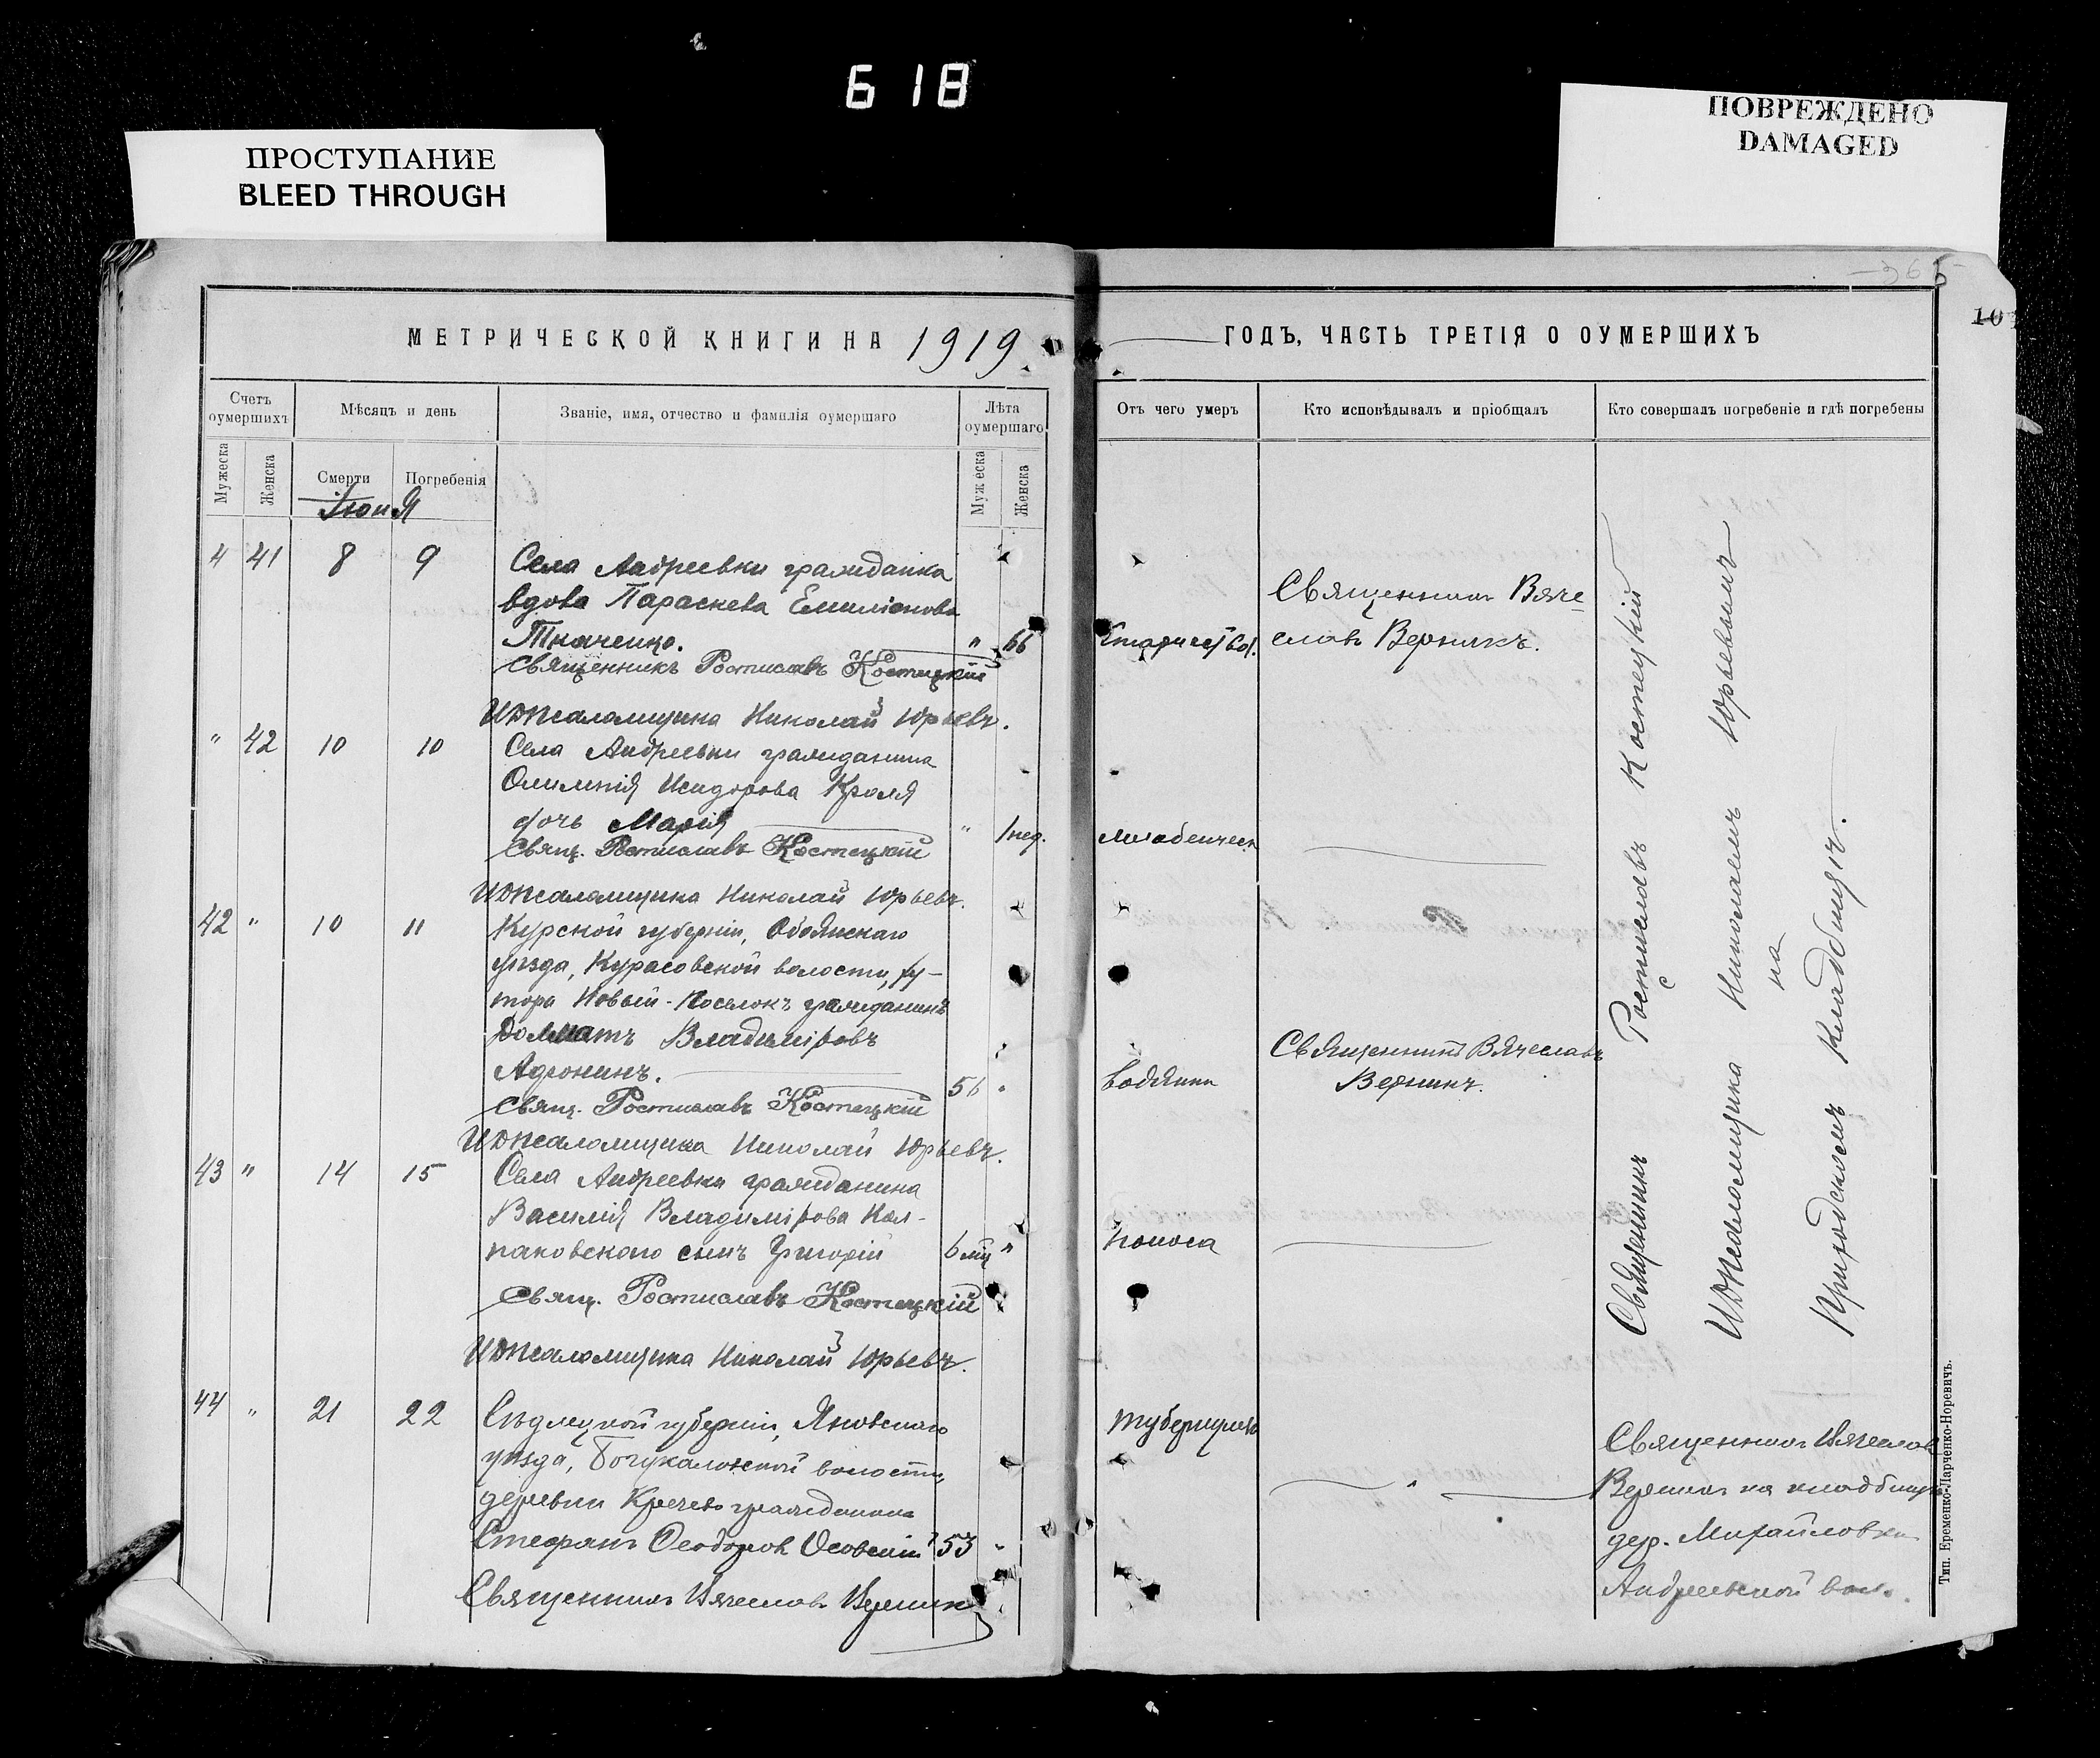 618
ПРОСТУПАНИЕ
BLEED THROUGH
ПОВРЕЖДЕНО
DAMAGED
МЕТРИЧЕСКОЙ КНИГИ НА 1919
Счетъ оумершихъ
Мѣсяцъ и день
Званіе, имя, отчество и фамилія оумершаго
Лѣта оумершаго
Мужеска
Женска
Смерти
Погребенія
Мужеска
Женска
Іюня
4 41 8 9 Села Андреевки гражданка
вдова Параскева Емиліанова
Ткаченко. " 66
Священникъ Ростиславъ Костецкій
И.д. псаломщика Николай Юрьевъ.
" 42 10 10 Села Андреевки гражданина
Олимпія Исидорова Кроля
дочь Марія " 1 нед.
Свящ. Ростиславъ Костецкій
И.д. псаломщика Николай Юрьевъ.
42 " 10 11 Курской губерніи, Обоянскаго
уѣзда, Курасовской волости, ху-
тора Новый-Поселокъ гражданинъ
Доматъ Владиміровъ
Афонинъ. 56 "
Свящ. Ростиславъ Костецкій
И.д. псаломщика Николай Юрьевъ.
43 " 14 15 Села Андреевки гражданина
Василія Владимірова Кол-
паковскаго сынъ Григорій 6 мц "
Свящ. Ростиславъ Костецкій
И.д. псаломщика Николай Юрьевъ.
44 " 21 22 Сѣдлецкой губерніи, Яновскаго
уѣзда, волости,
деревни гражданинъ
Стефанъ Феодоровъ Осовскій 53 "
Священникъ Вячеславъ Верникъ
365
10
ГОДЪ, ЧАСТЬ ТРЕТІЯ О ОУМЕРШИХЪ
Отъ чего умеръ
Кто исповѣдывалъ и пріобщалъ
Кто совершалъ погребеніе и гдѣ погребены
Священникъ Вяче-
славъ Верникъ.
младенческ
Священникъ Вячеславъ
Верникъ.
водянки
поноса
туберкулеза
Священникъ Ростиславъ Костецкій
И.д. псаломщика Николаемъ Юрьевымъ
на
Приходскомъ кладбищѣ.
Священникъ Вячеслав
Верникъ на кладбищѣ
дер. Михайловки
Андреевской вол.
Тип. Еременко-Ларченко-Норевичъ.